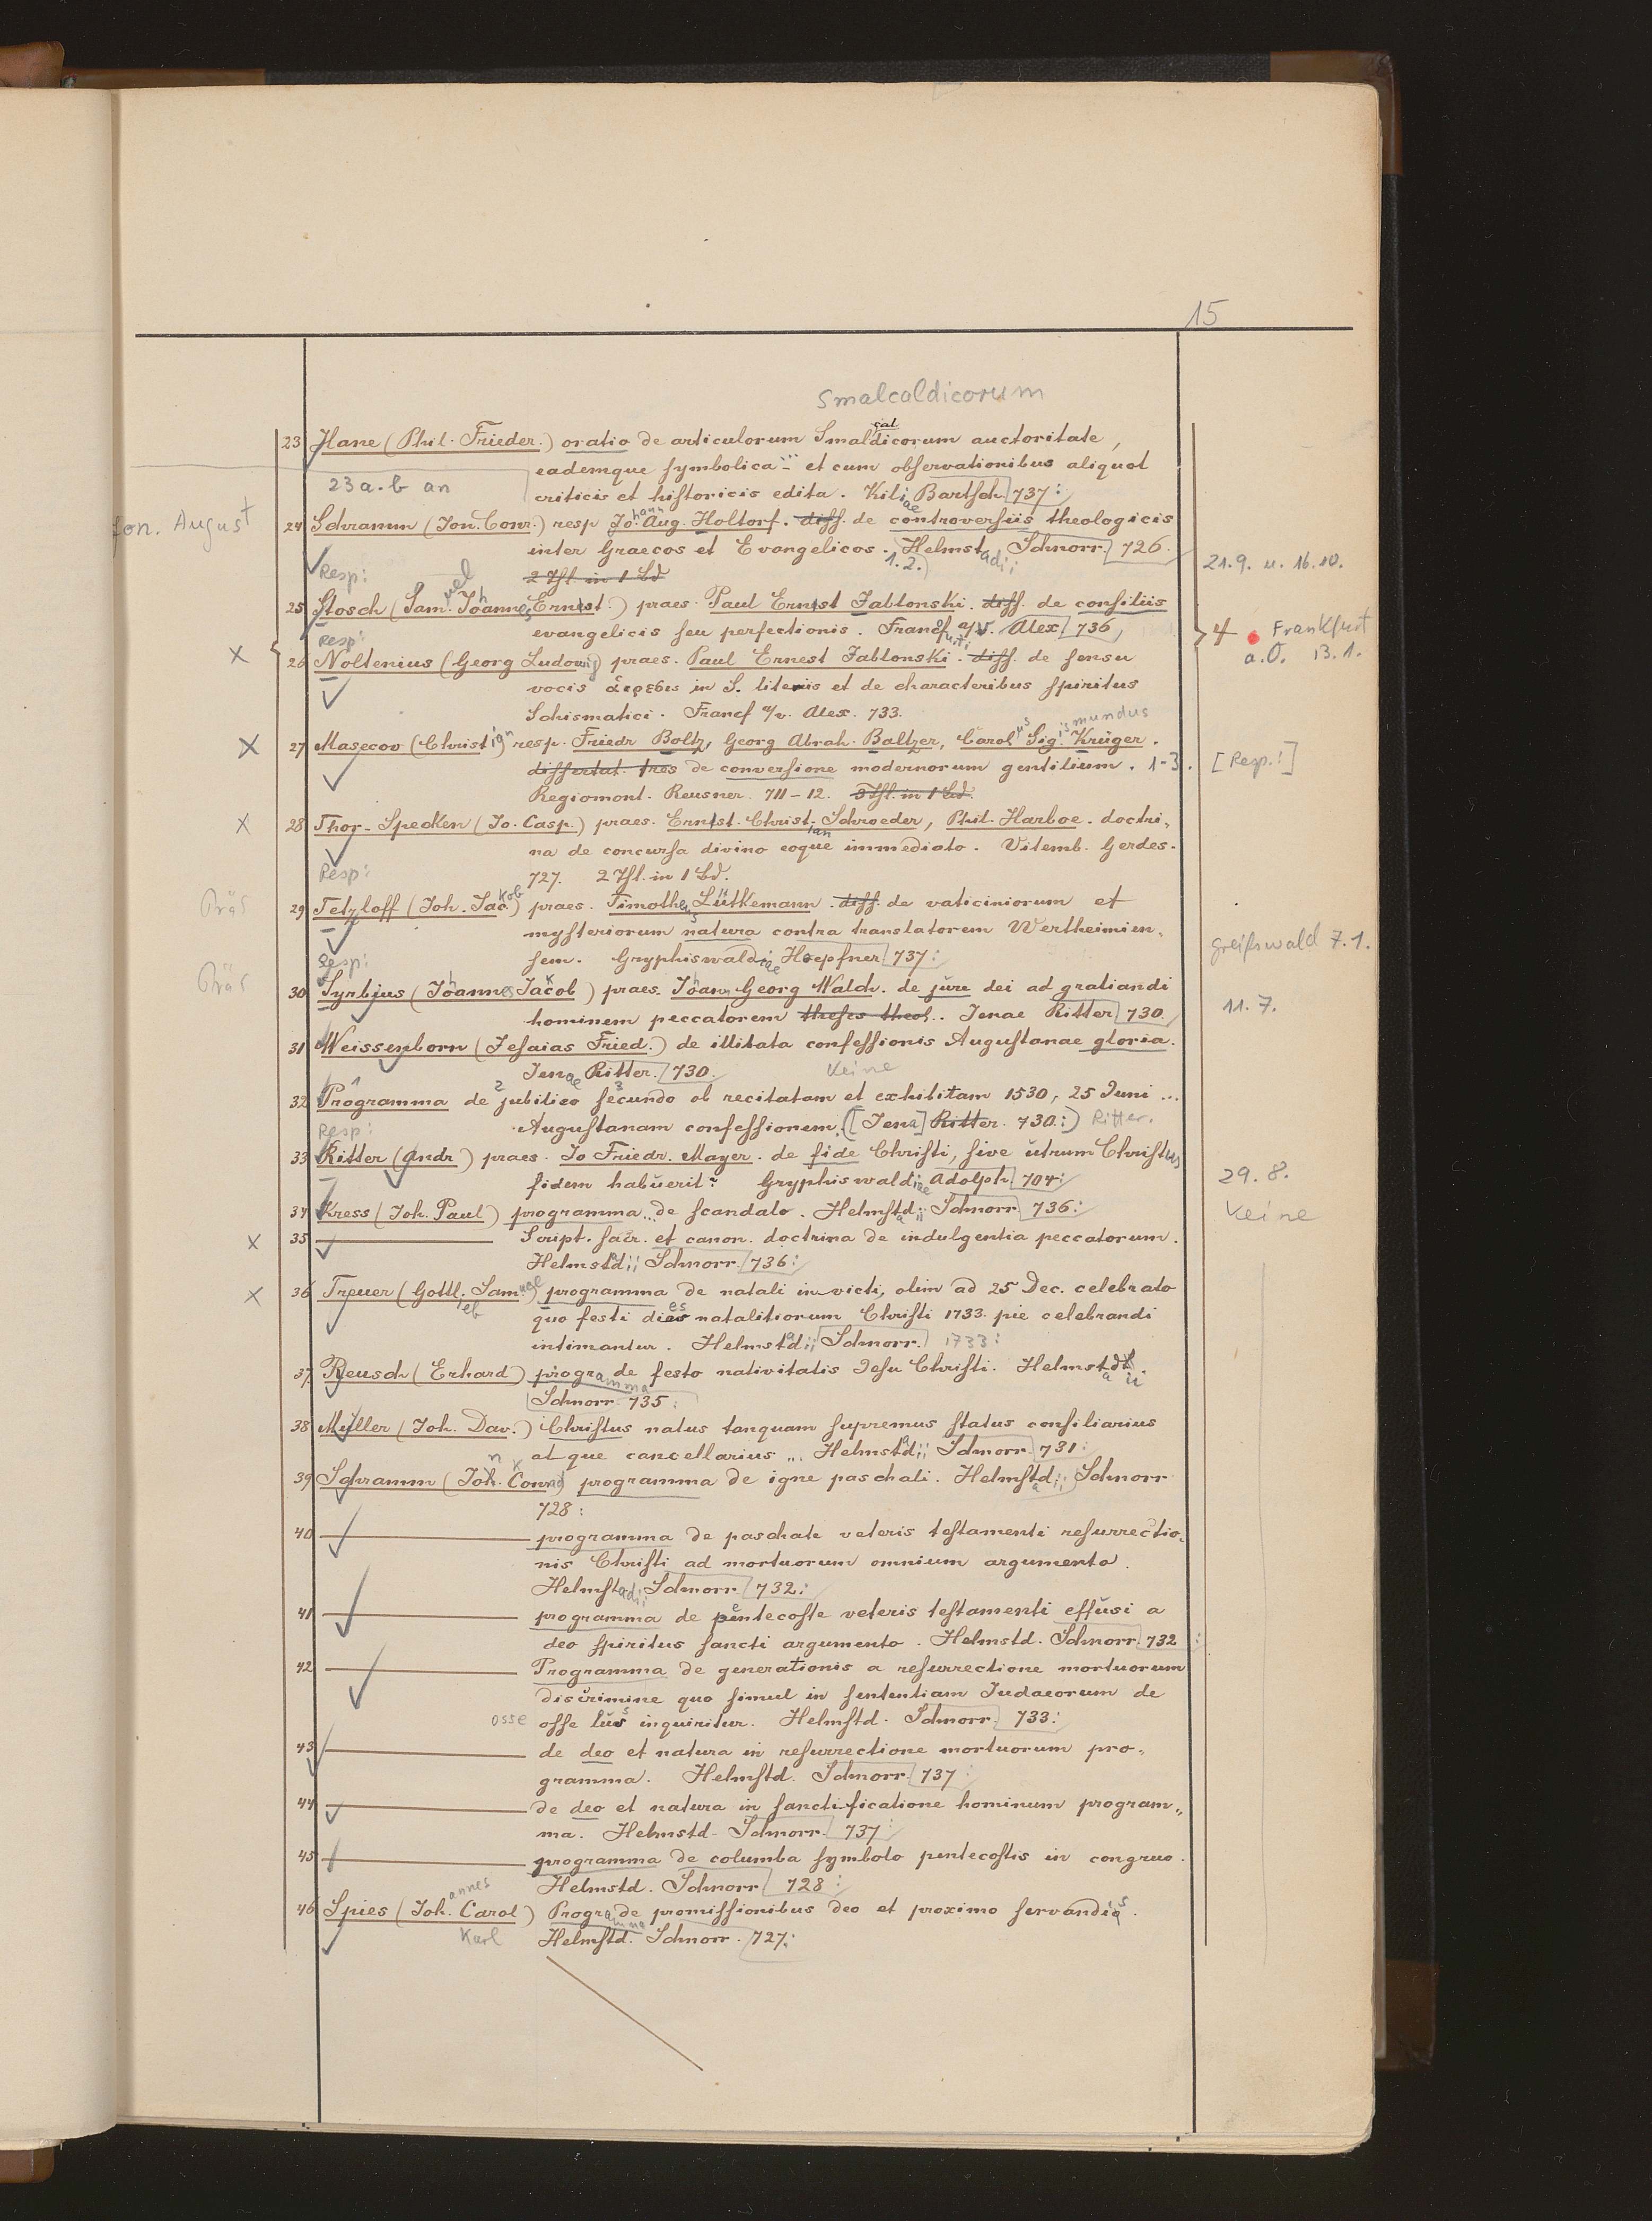 15
Smalcaldicorum
23 Hane (Phil. Frieder.) oratio de articulorum Smalcaldicorum auctoritate,
eademque symbolica ... et cum observationibus aliquot
23 a. b an
criticis et historicis edita. Kiliae Bartsch 737:
Jon. August
24 Schramm (Jon. Conr.) resp Johann Aug. Holtorf. diss. de controversiis theologicis
inter Graecos et Evangelicos. 1.2.) Helmstadii Schnorr 726.
21.9. u. 16.10.
Resp: 2 Thl. in 1 Bd
25 Stosch (Samuel Johannes Ernst.) praes. Paul Ernst Jablonski. diss. de consiliis
evangelicis seu perfectionis. Francfurti a/V. Alex 736
4 Frankfurt
a.O. 13.1.
Resp:
x 26 Noltenius (Georg Ludowig) praes. Paul Ernest Jablonski. diss. de sensu
vocis ἁιρεσις in S. literis et de characteribus spiritus
Schismatici. Francf a/v. Alex. 733.
x 27 Masecov (Christian) resp. Friedr Boltz, Georg Abrah. Baltzer, Carolus Sigismundus Krüger.
dissertat. tres de conversione modernorum gentilium. 1-3.
[Resp.!]
Regiomont. Reusner. 711-12. 3 Thl. in 1 Bd.
x 28 Thor-Specken (Jo. Casp.) praes. Ernst. Christian Schroeder, Phil. Harboe. doctri„
na de concursa divino eoque immediato. Vitemb. Gerdes.
Resp: 727. 2 Thl. in 1 Bd.
Präs
29 Tetzloff (Joh. Jackob) praes. Timotheus Lütkemann. diss. de vaticiniorum et
mysteriorum natura contra translatorem Wertheimien„
sem. Gryphiswaldiae Hoepfner 737:
Greifswald 7.1.
Resp:
Präs
30 Syrbius (Johannes Jacob) praes. Johann Georg Walch. de jure dei ad gratiandi
hominem peccatorem theses theol.. Jenae Ritter 730.
11.7.
31 Weissenborn (Jesaias Fried.) de illibata confessionis Augustanae gloria.
Jenae Ritter. 730. Keine
32 Programma de jubilaeo secundo ob recitatam et exhibitam 1530, 25 Juni ...
Augustanam confessionem. ([Jena] Ritter. 730:) Ritter.
Resp:
33 Ritter (Andr) praes. Jo Friedr. Mayer. de fide Christi, sive utrum Christus
fidem habuerit? Gryphiswaldiae Adolph 704:
29.8.
34 Kress (Joh. Paul) programma ... de scandalo. Helmstadii Schnorr 736:
Keine
x 35 Script. sacr. et canon. doctrina de indulgentia peccatorum.
Helmstadii Schnorr 736:
x 36 Treuer (Gottlieb Samuel) programma de natali invicti, olim ad 25 Dec. celebrato
quo festi dies natalitiorum Christi 1733. pie celebrandi
intimantur. Helmstadii Schnorr. 1733:
37. Reusch (Erhard) programma de festo nativitatis Jesu Christi. Helmstadii
Schnorr 735:
38 Müller (Joh. Dav.) Christus natus tanquam supremus status consiliarius
atque cancellarius ... Helmstadii Schnorr 731:
39 Schramm (Jon. Konrad) programma de igne paschali. Helmstadii Schnorr
728:
40 programma de paschate veteris testamenti resurrectio„
nis Christi ad mortuorum omnium argumento.
Helmstadii Schnorr 732:
41 programma de pentecoste veteris testamenti effusi a
deo spiritus sancti argumento. Helmstd. Schnorr 732:
42 Programma de generationis a resurrectione mortuorum
discrimine quo simul in sententiam Judaeorum de
osse osse lus inquiritur. Helmstd. Schnorr 733:
43 de deo et natura in resurrectione mortuorum pro„
gramma. Helmstd. Schnorr 737:
44 de deo et natura in sanctificatione hominum program„
ma. Helmstd. Schnorr. 737:
45 programma de columba symbolo pentecostis in congruo.
Helmstd. Schnorr 728:
46 Spies (Johannes Carol) Programma de promissionibus deo et proximo servandis.
Karl Helmstd. Schnorr. 727: